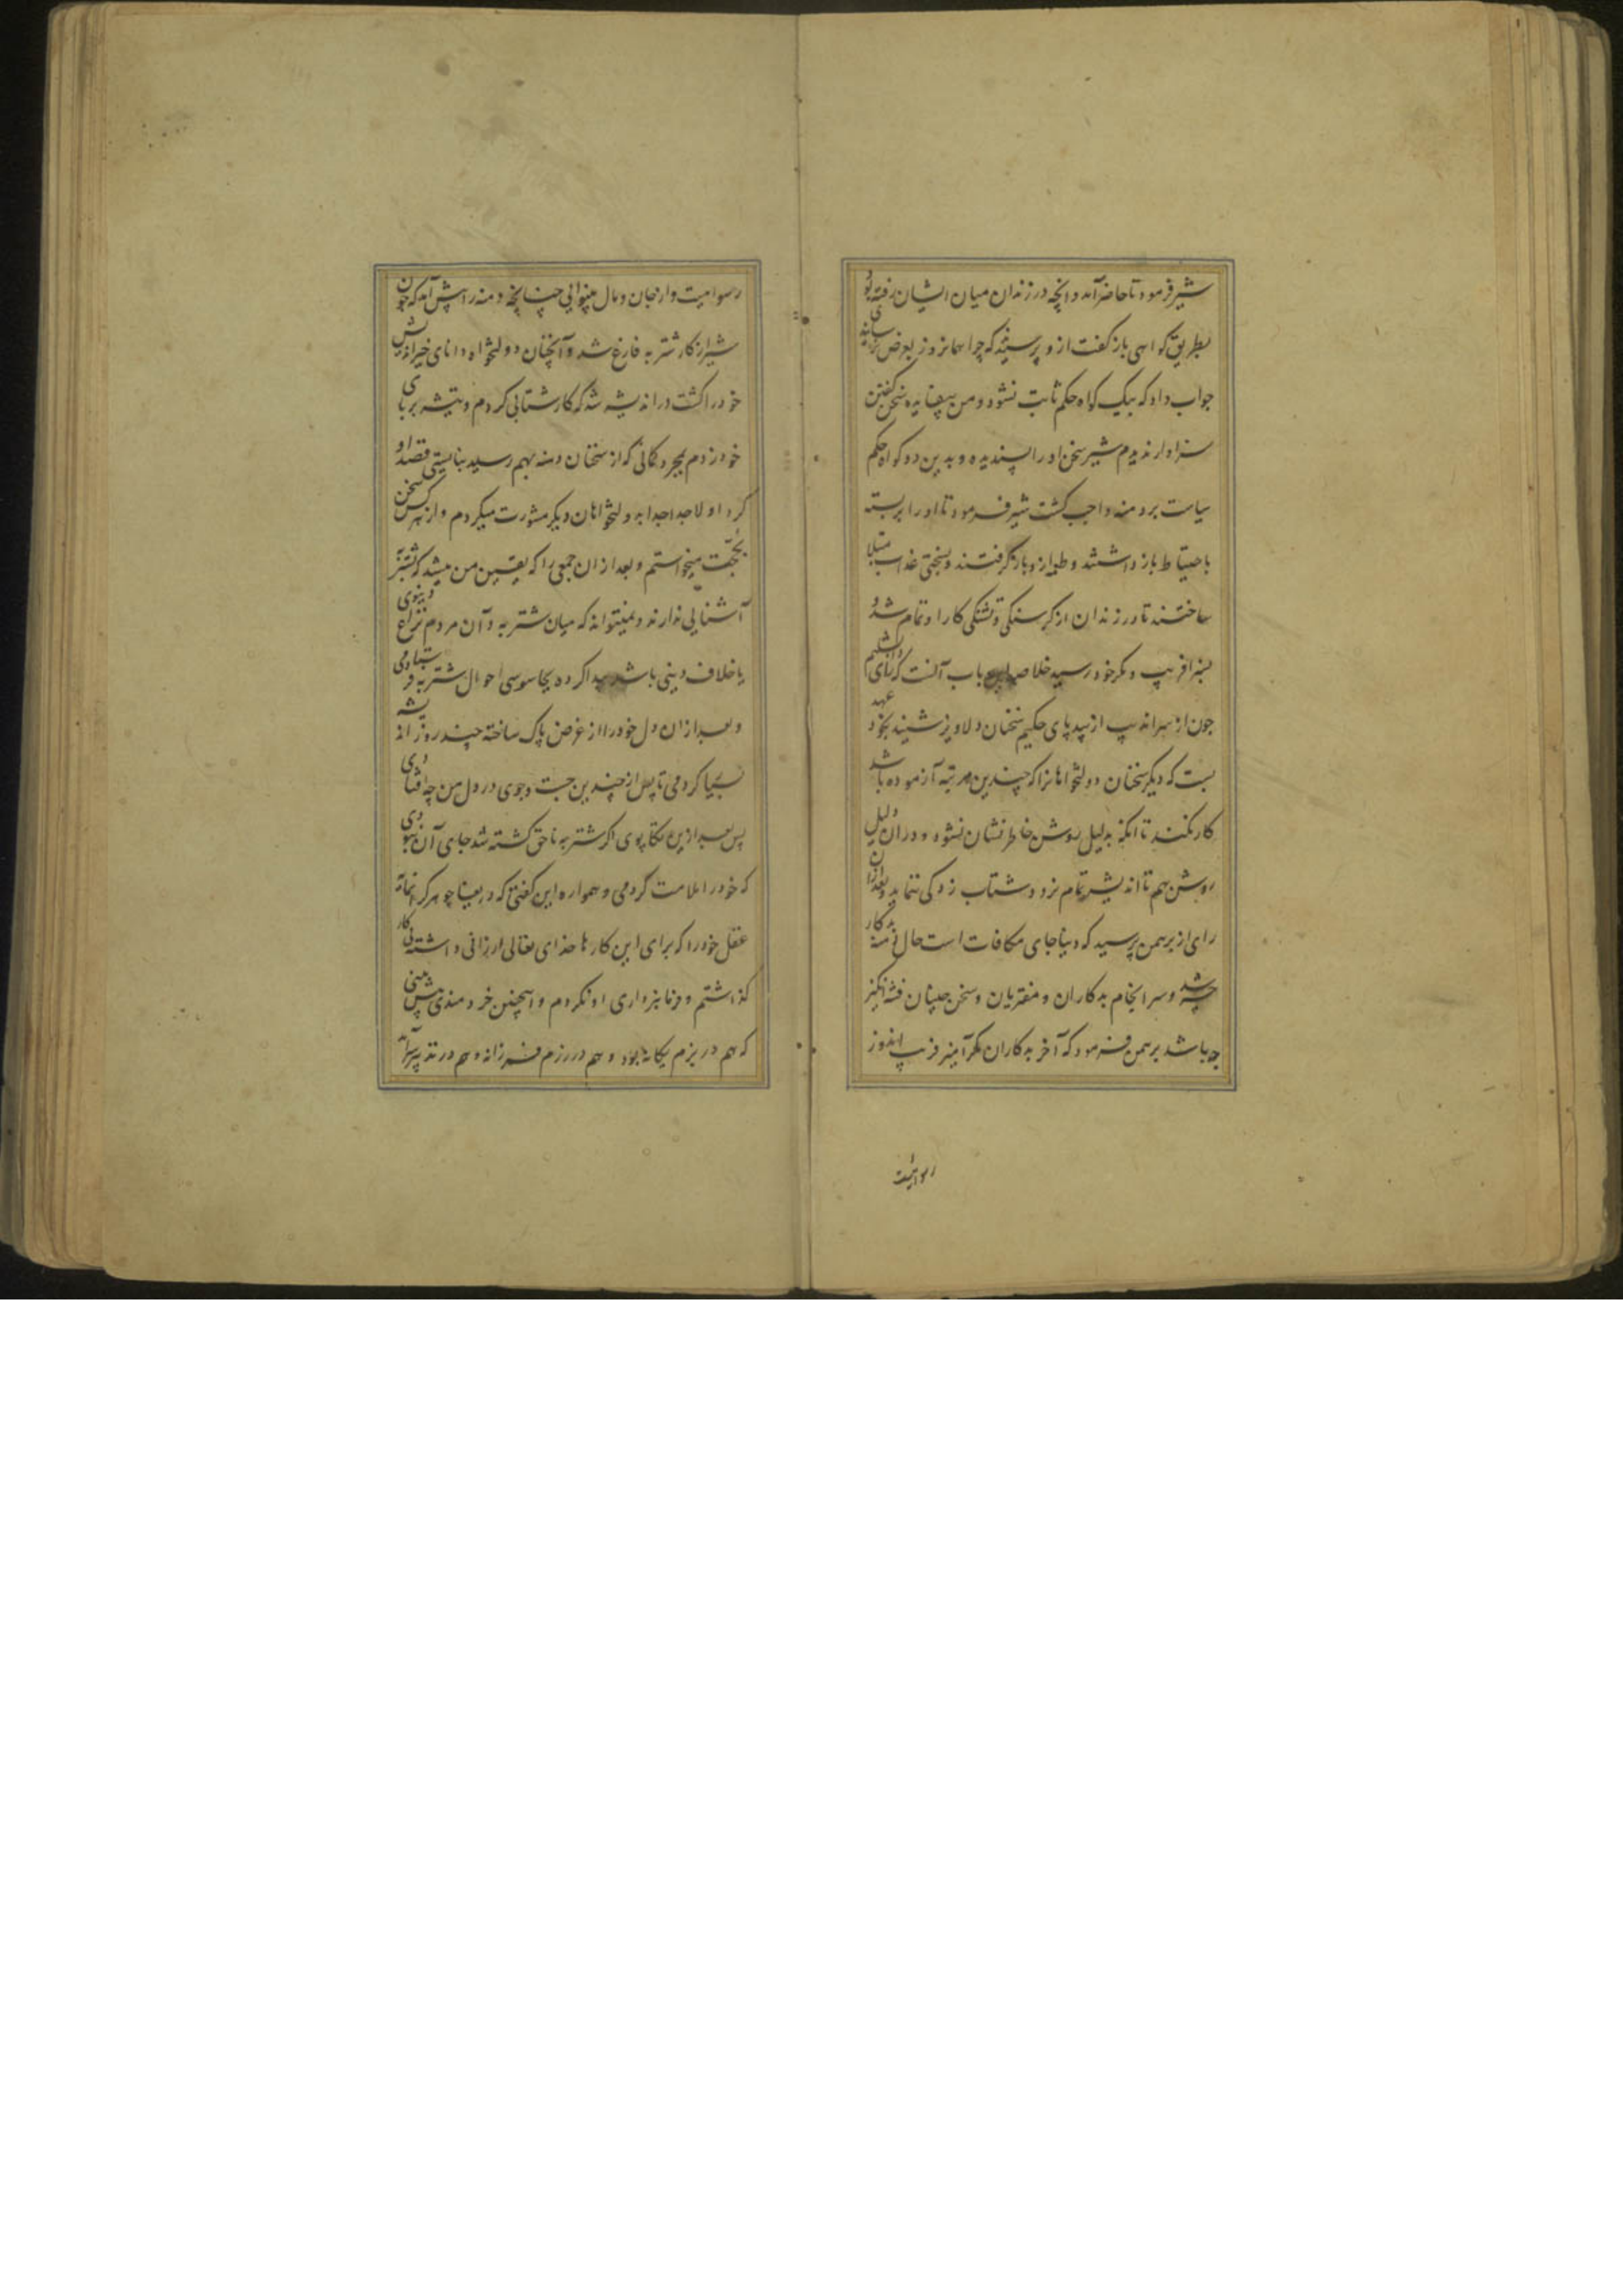 شیر فرمود تا حاضر آمد و آنچه در زندان میان ایشان رفته بود
بطریق کواهی باز کفت ازو پرسیدند که چرا همانروز بعرض نرسانیدی
جواب داد که بیک کواه حکم ثابت نشود و من بیفایده سخن کفتن
سزاوار ندیدم شیر سخن او را پسندیده و بدین دو کواه حکم
سیاست بر دمنه واجب کشت شیر فرمود تا او را بربسته
باحتیاط باز داشتند و طعمه ازو باز کرفتند و بسختی عذاب مبتلا
ساختند تا در زندان از کرسنکی و تشنکی کار او تمام شد و
بسزا فریب و مکر خود رسید خلاصه این باب آنست که رای دابشلیم
چون از سراندیب از بیدپای حکیم سخنان دلاویز شنید بخود عهد
بست که دیکر سخنان دولتخواهانرا که چندین مرتبه آزموده باشد
کار نکند تا آنکه بدلیل روشن خاطرنشان نشود و در آن دلیل
روشن هم تا اندیشه تمام نرود شتاب زدکی ننماید و بعد از آن
رای از برهمن پرسید که دنیا جای مکافات است حال دمنه بدکار
چه شد و سرانجام بدکاران و مفتریان و سخن چینان فتنه انکیز
چه باشد برهمن فرمود که آخر بدکاران مکرآمیز فریب اندوز
رسوائیست
رسوائیست و از جان و مال بینوایی چنانچه دمنه را پیش آمد که چون
شیر از کار شتربه فارغ شد و آنچنان دولتخواه دانای خیراندیش
خود را کشت در اندیشه شد که کار شتابی کردم و تیشه بر پای
خود زدم بمجرد کمانی که از سخنان دمنه بهم رسید نبایستی قصد او
کرد اولا جدا جدا به دولتخواهان دیکر مشورت میکردم و از هر کس سخن
بحجت میخواستم و بعد از آن جمعی را که یقین من میشد که بشتربه
آشنایی ندارند و نمیتواند که میان شتربه و آن مردم نزاع دنیوی
یا خلاف دینی باشد پیدا کرده بجاسوسی احوال شتربه فرستادمی
و بعد از آن دل خود را از غرض پاک ساخته چند روز اندیشه
بسیار کردمی تا پس از چندین جست و جوی در دل من چه افتادی
پس بعد از این تکاپوی اکر شتربه ناحق کشته شد جای آن نبودی
که خود را ملامت کردمی و همواره این کفتی که دریغا جوهر کرانمایه
عقل خود را که برای این کارها خدای تعالی ارزانی داشته بی کار
کذاشتم و فرمانبرداری او نکردم و اینچنین خردمندی پیش بینی
که هم در بزم یکانه بود و هم در رزم فرزانه و هم در تدبیر سرآمد